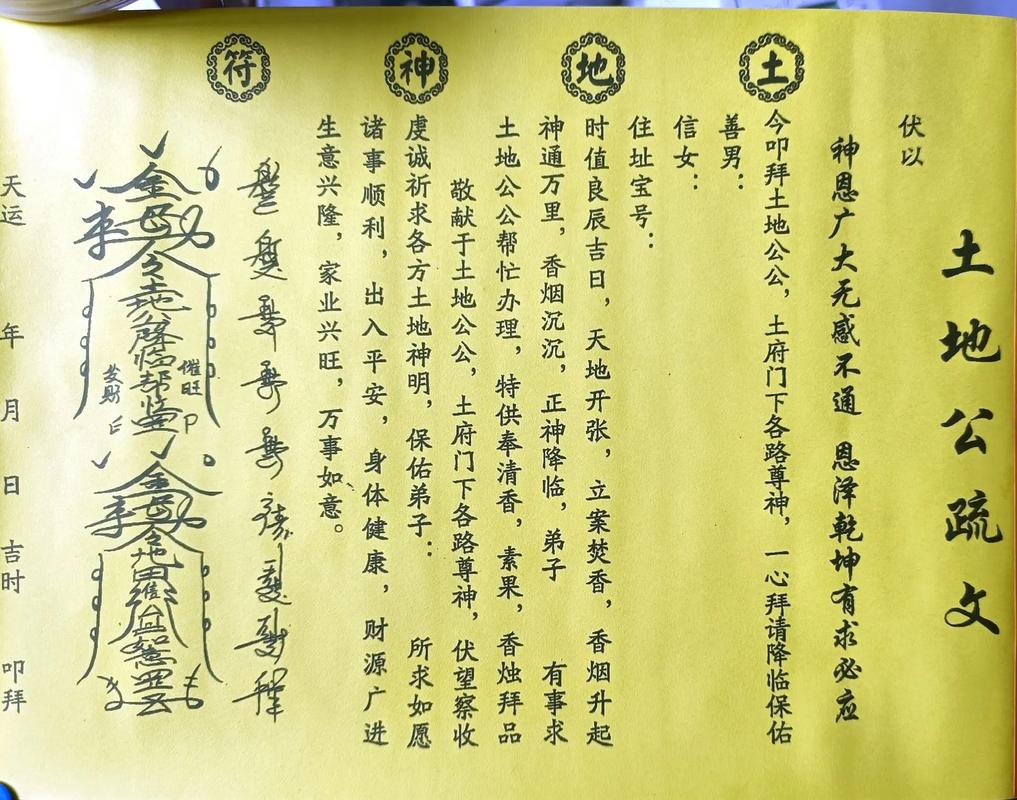 土地公疏文
伏以
神恩广大无感不通 恩泽乾坤有求必应
土地神符
今叩拜土地公公，土府门下各路尊神，一心拜请降临保佑
善男：
信女：
住址宝号：
时值良辰吉日，天地开张，立案焚香，香烟升起
神通万里，香烟沉沉，正神降临，弟子 有事求
土地公公帮忙办理，特供奉清香，素果，香烛拜品
敬献于土地公公，土府门下各路尊神，伏望察收
虔诚祈求各方土地神明，保佑弟子： 所求如愿
诸事顺利，出入平安，身体健康，财源广进
生意兴隆，家业兴旺，万事如意。
催旺
发财
天运 年 月 日 吉时 叩拜